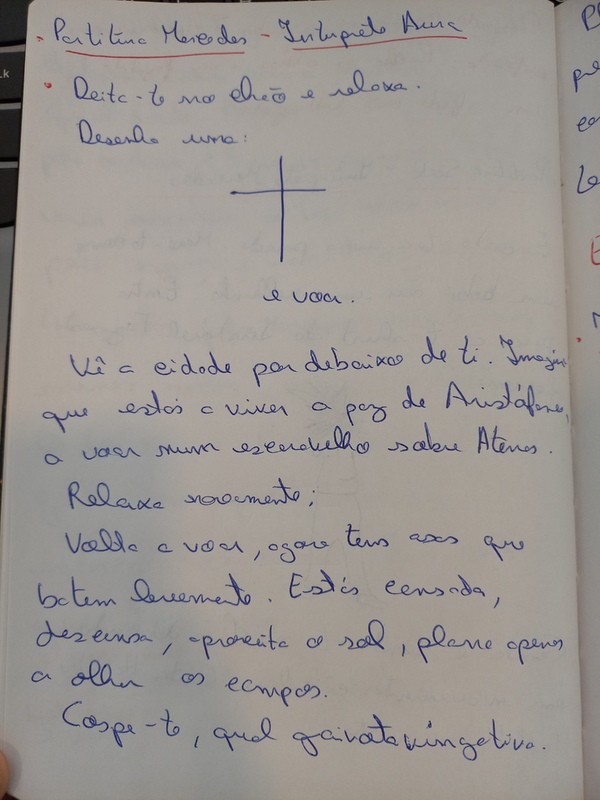 Partitura Mercedes - Intérprete Anna
Deita-te no chão e relaxa.
Desenha uma:
e voa.
Vê a cidade por debaixo de ti. Imagina
que estás a viver a paz de Aristófanes,
a voar num escaravelho sobre Atenas.
Relaxa novamente;
Volta a voar, agora tens asas que
batem levemente. Estás cansada,
descansa, aproveita o sol, plana apenas
a olhar os campos.
Cospe-te, qual gaivota vingativa.